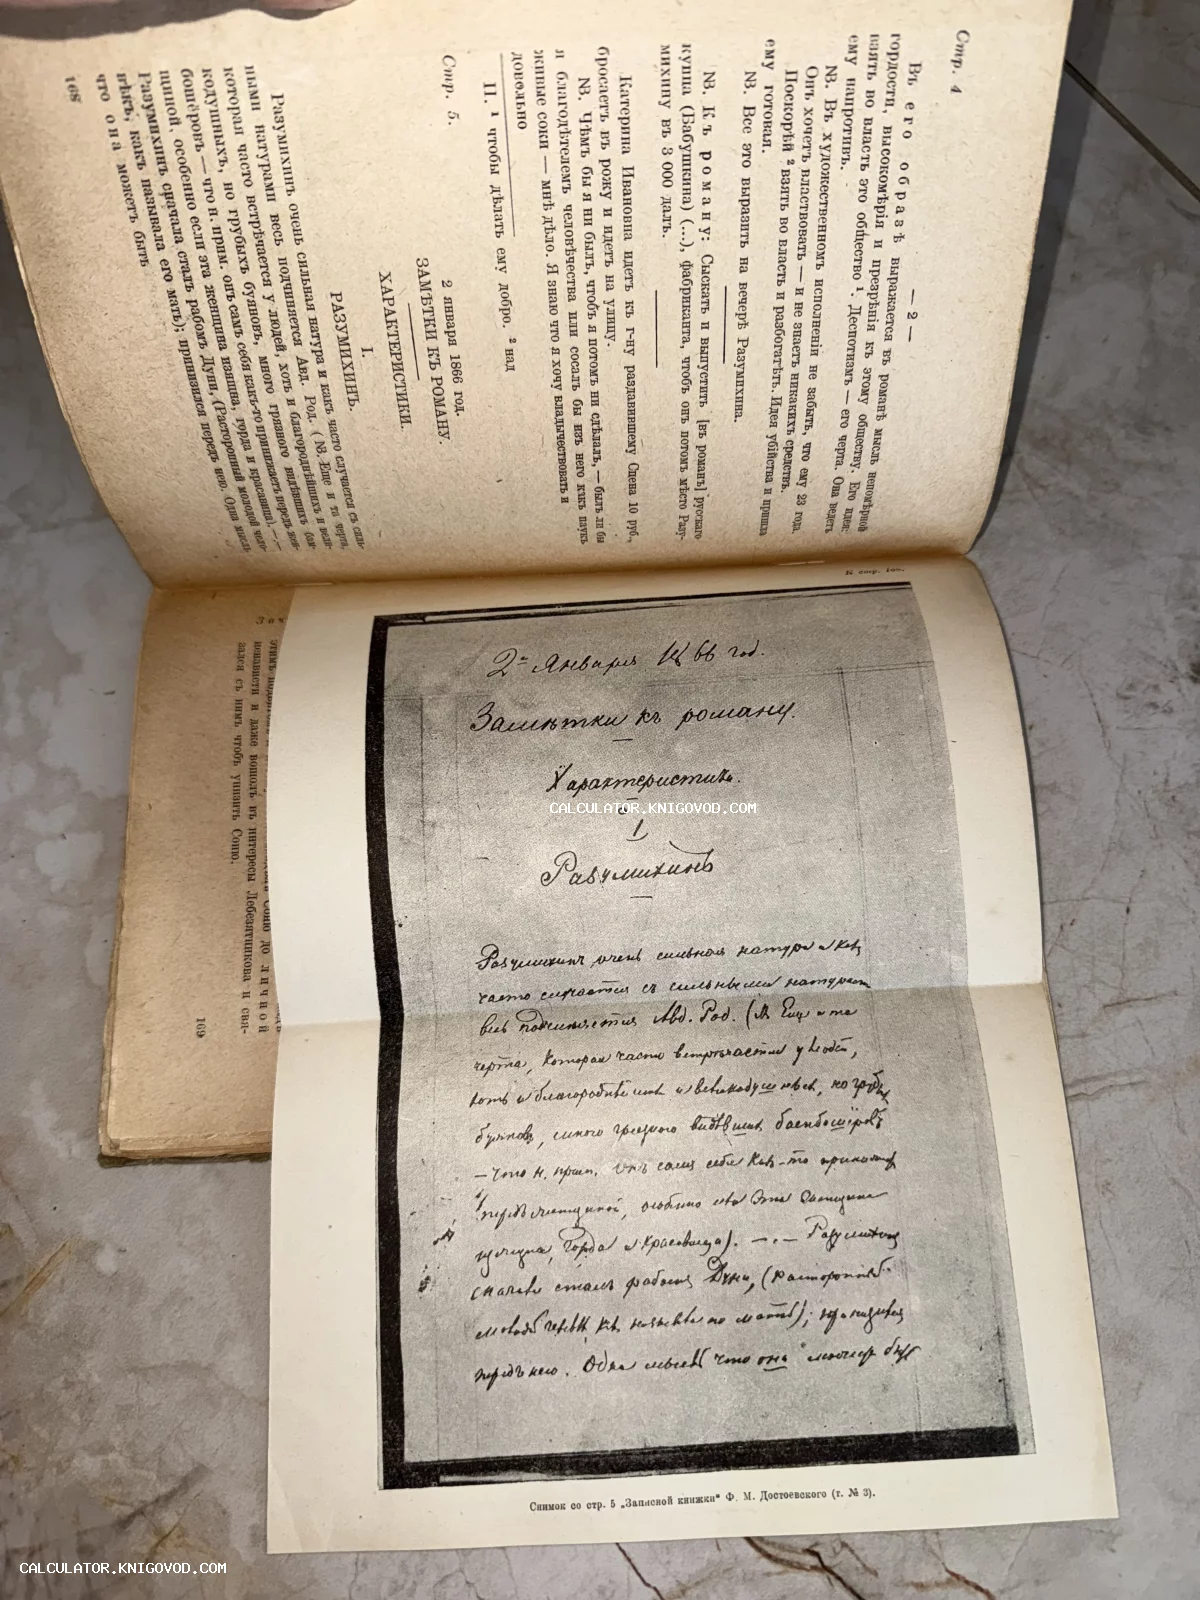 — 2 —
Стр. 4
Въ его образѣ выражается въ романѣ мысль непомѣрной
гордости, высокомѣрія и презрѣнія къ этому обществу. Его идея:
взять во власть это общество ¹. Деспотизмъ — его черта. Она ведетъ
ему напротивъ.
NВ. Въ художественномъ исполненіи не забыть, что ему 23 года.
Онъ хочетъ властвовать — и не знаетъ никакихъ средствъ.
Поскорѣй ² взять во власть и разбогатѣть. Идея убійства и пришла
ему готовая.
NВ. Все это выразить на вечерѣ Разумихина.
NВ. Къ роману: Сыскать и выпустить [въ романъ] русскаго
купца (Бабушкина) (...), фабриканта, чтобъ онъ потомъ мѣсто Разу-
михину въ 3 000 далъ.
Катерина Ивановна идетъ къ г-ну раздавившему Спева 10 руб.,
бросаетъ въ рожу и идетъ на улицу.
NВ. Чѣмъ бы я ни былъ, чтобъ я потомъ ни сдѣлалъ, — былъ ли бы
я благодѣтелемъ человѣчества или сосалъ бы изъ него какъ паукъ
живые соки — мнѣ дѣло. Я знаю что я хочу владычествовать и
довольно
II. ¹ чтобы дѣлать ему добро. ² над
Стр. 5.
2 января 1866 год.
ЗАМѢТКИ КЪ РОМАНУ.
ХАРАКТЕРИСТИКИ.
I.
РАЗУМИХИНЪ.
Разумихинъ очень сильная натура и какъ часто случается съ силь-
ными натурами весь подчиняется Авд. Род. (NВ. Еще и та черта,
которая часто встрѣчается у людей, хоть и благороднѣйшихъ и вели-
кодушныхъ, но грубыхъ буяновъ, много грязного видѣвшихъ бам-
бошёровъ — что н. прим. онъ самъ себя какъ-то принижаетъ передъ жен-
щиной, особенно если эта женщина изящна, горда и красавица). —
Разумихинъ сначала сталъ рабомъ Дуни, (Расторопный молодой чело-
вѣкъ, какъ называла его мать); принизился передъ нею. Одна мысль
что она можетъ быть
168
К стр. 168.
2го Января 1866 год.
Замѣтки къ роману.
Характеристики.
1
Разумихинъ
Разумихинъ очень сильная натура и какъ
часто случается съ сильными натурами
весь подчиняется Авд. Род. (NВ. Еще и та
черта, которая часто встрѣчается у людей,
хоть и благороднѣйшихъ и великодушныхъ, но грубыхъ
буяновъ, много грязного видѣвшихъ бамбошёровъ
— что н. прим. онъ самъ себя какъ-то принижаетъ
передъ женщиной, особенно если эта женщина
изящна, горда и красавица). —.— Разумихинъ
сначала сталъ рабомъ Дуни, (расторопный
молодой человѣкъ, какъ называла его мать); принизился
передъ нею. Одна мысль что она можетъ быть
Снимок со стр. 5 „Записной книжки“ Ф. М. Достоевского (т. № 3).
ненависти и даже вошолъ въ интересы Лебезятникова и свя-
зался съ нимъ чтобъ унизить Соню.
169
CALCULATOR.KNIGOVOD.COM
CALCULATOR.KNIGOVOD.COM